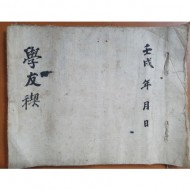 壬戌 年 月 日
學友禊